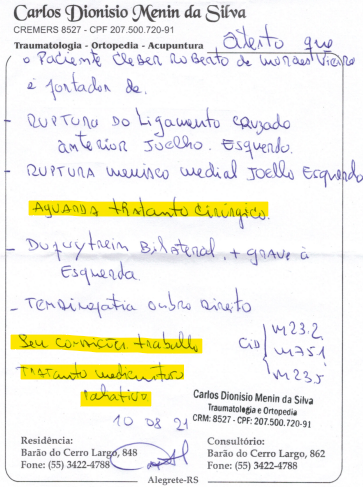 Carlos Dionisio Menin da Silva
CREMERS 8527 - CPF 207.500.720-91
Traumatologia - Ortopedia - Acupuntura
Atesto que
o Paciente Cleber Roberto de Moraes Vieira
é portador de.
- RUPTURA DO Ligamento CRUZADO
anterior Joelho. Esquerdo.
- RUPTURA menisco medial Joelho Esquerdo
Aguarda tratanto cirúrgico.
- Dupuytrein Bilateral, + grave à
Esquerda.
- Tendinopatia ombro Direito
Sem condições trabalho
CID
M23.2
M75.1
M23.5
tratanto medicmtoso
Paliativo
10 08 21
Carlos Dionisio Menin da Silva
Traumatologia e Ortopedia
CRM: 8527 - CPF: 207.500.720-91
Residência:
Barão do Cerro Largo, 848
Fone: (55) 3422-4788
Consultório:
Barão do Cerro Largo, 862
Fone: (55) 3422-4788
Alegrete-RS